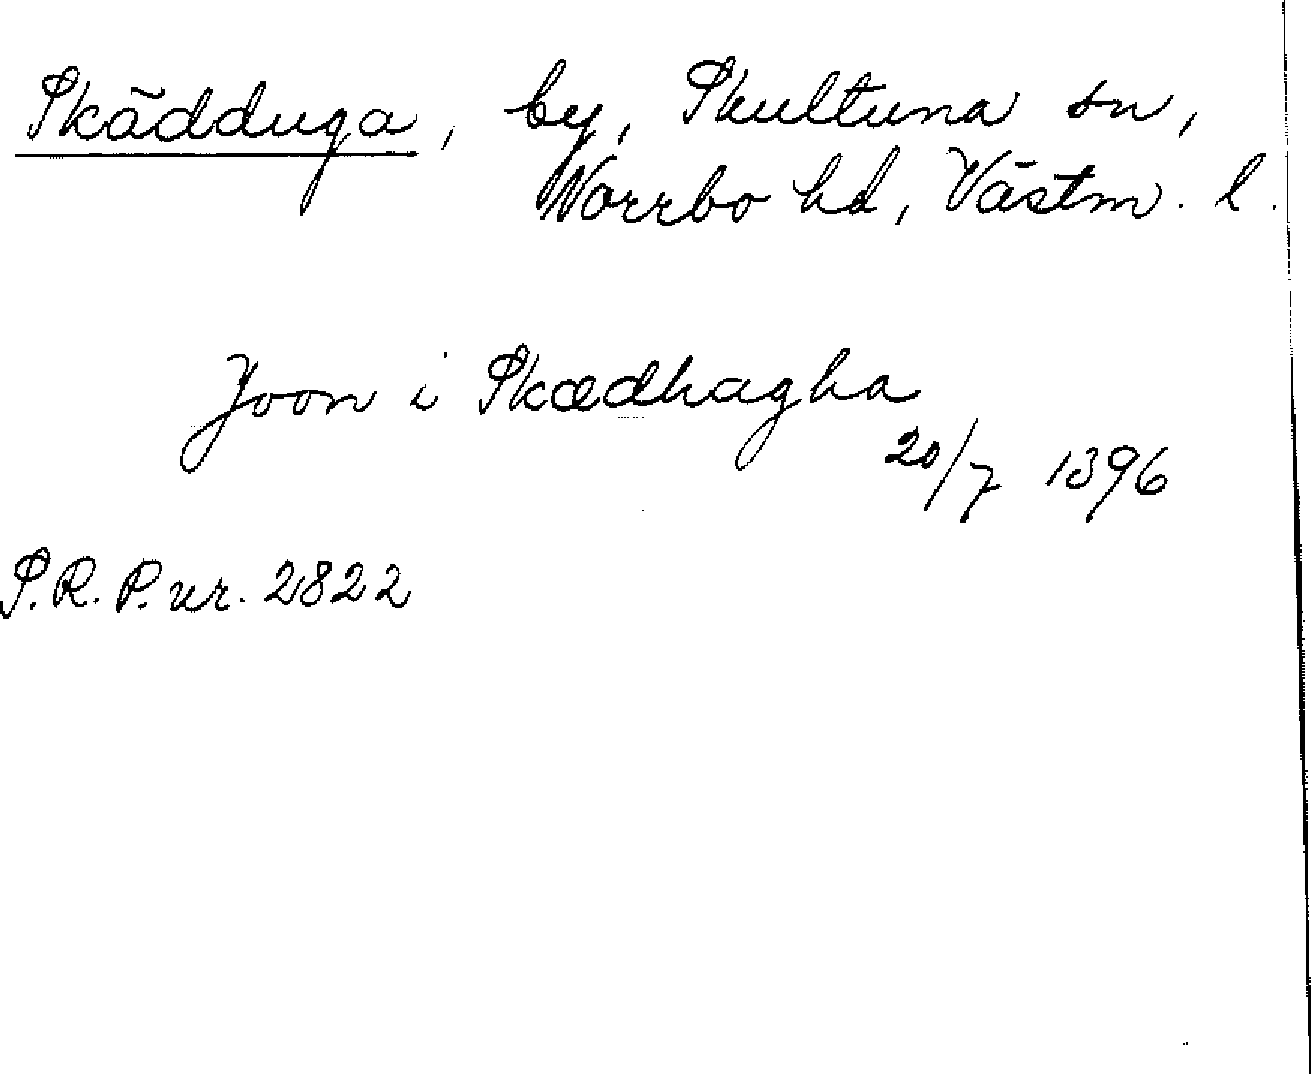 Skädduga, by, Skultuna sn,
Norrbo hd, Västm. l.
Joon i Skædhagha
20/7 1396
S.R.P. nr. 2822